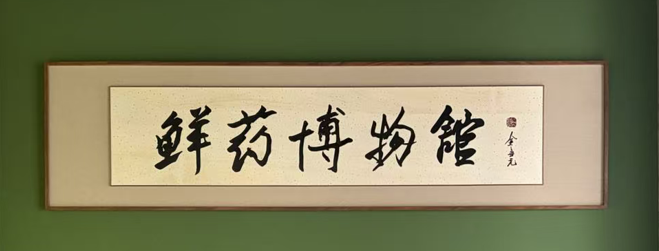 鲜药博物館
金世元